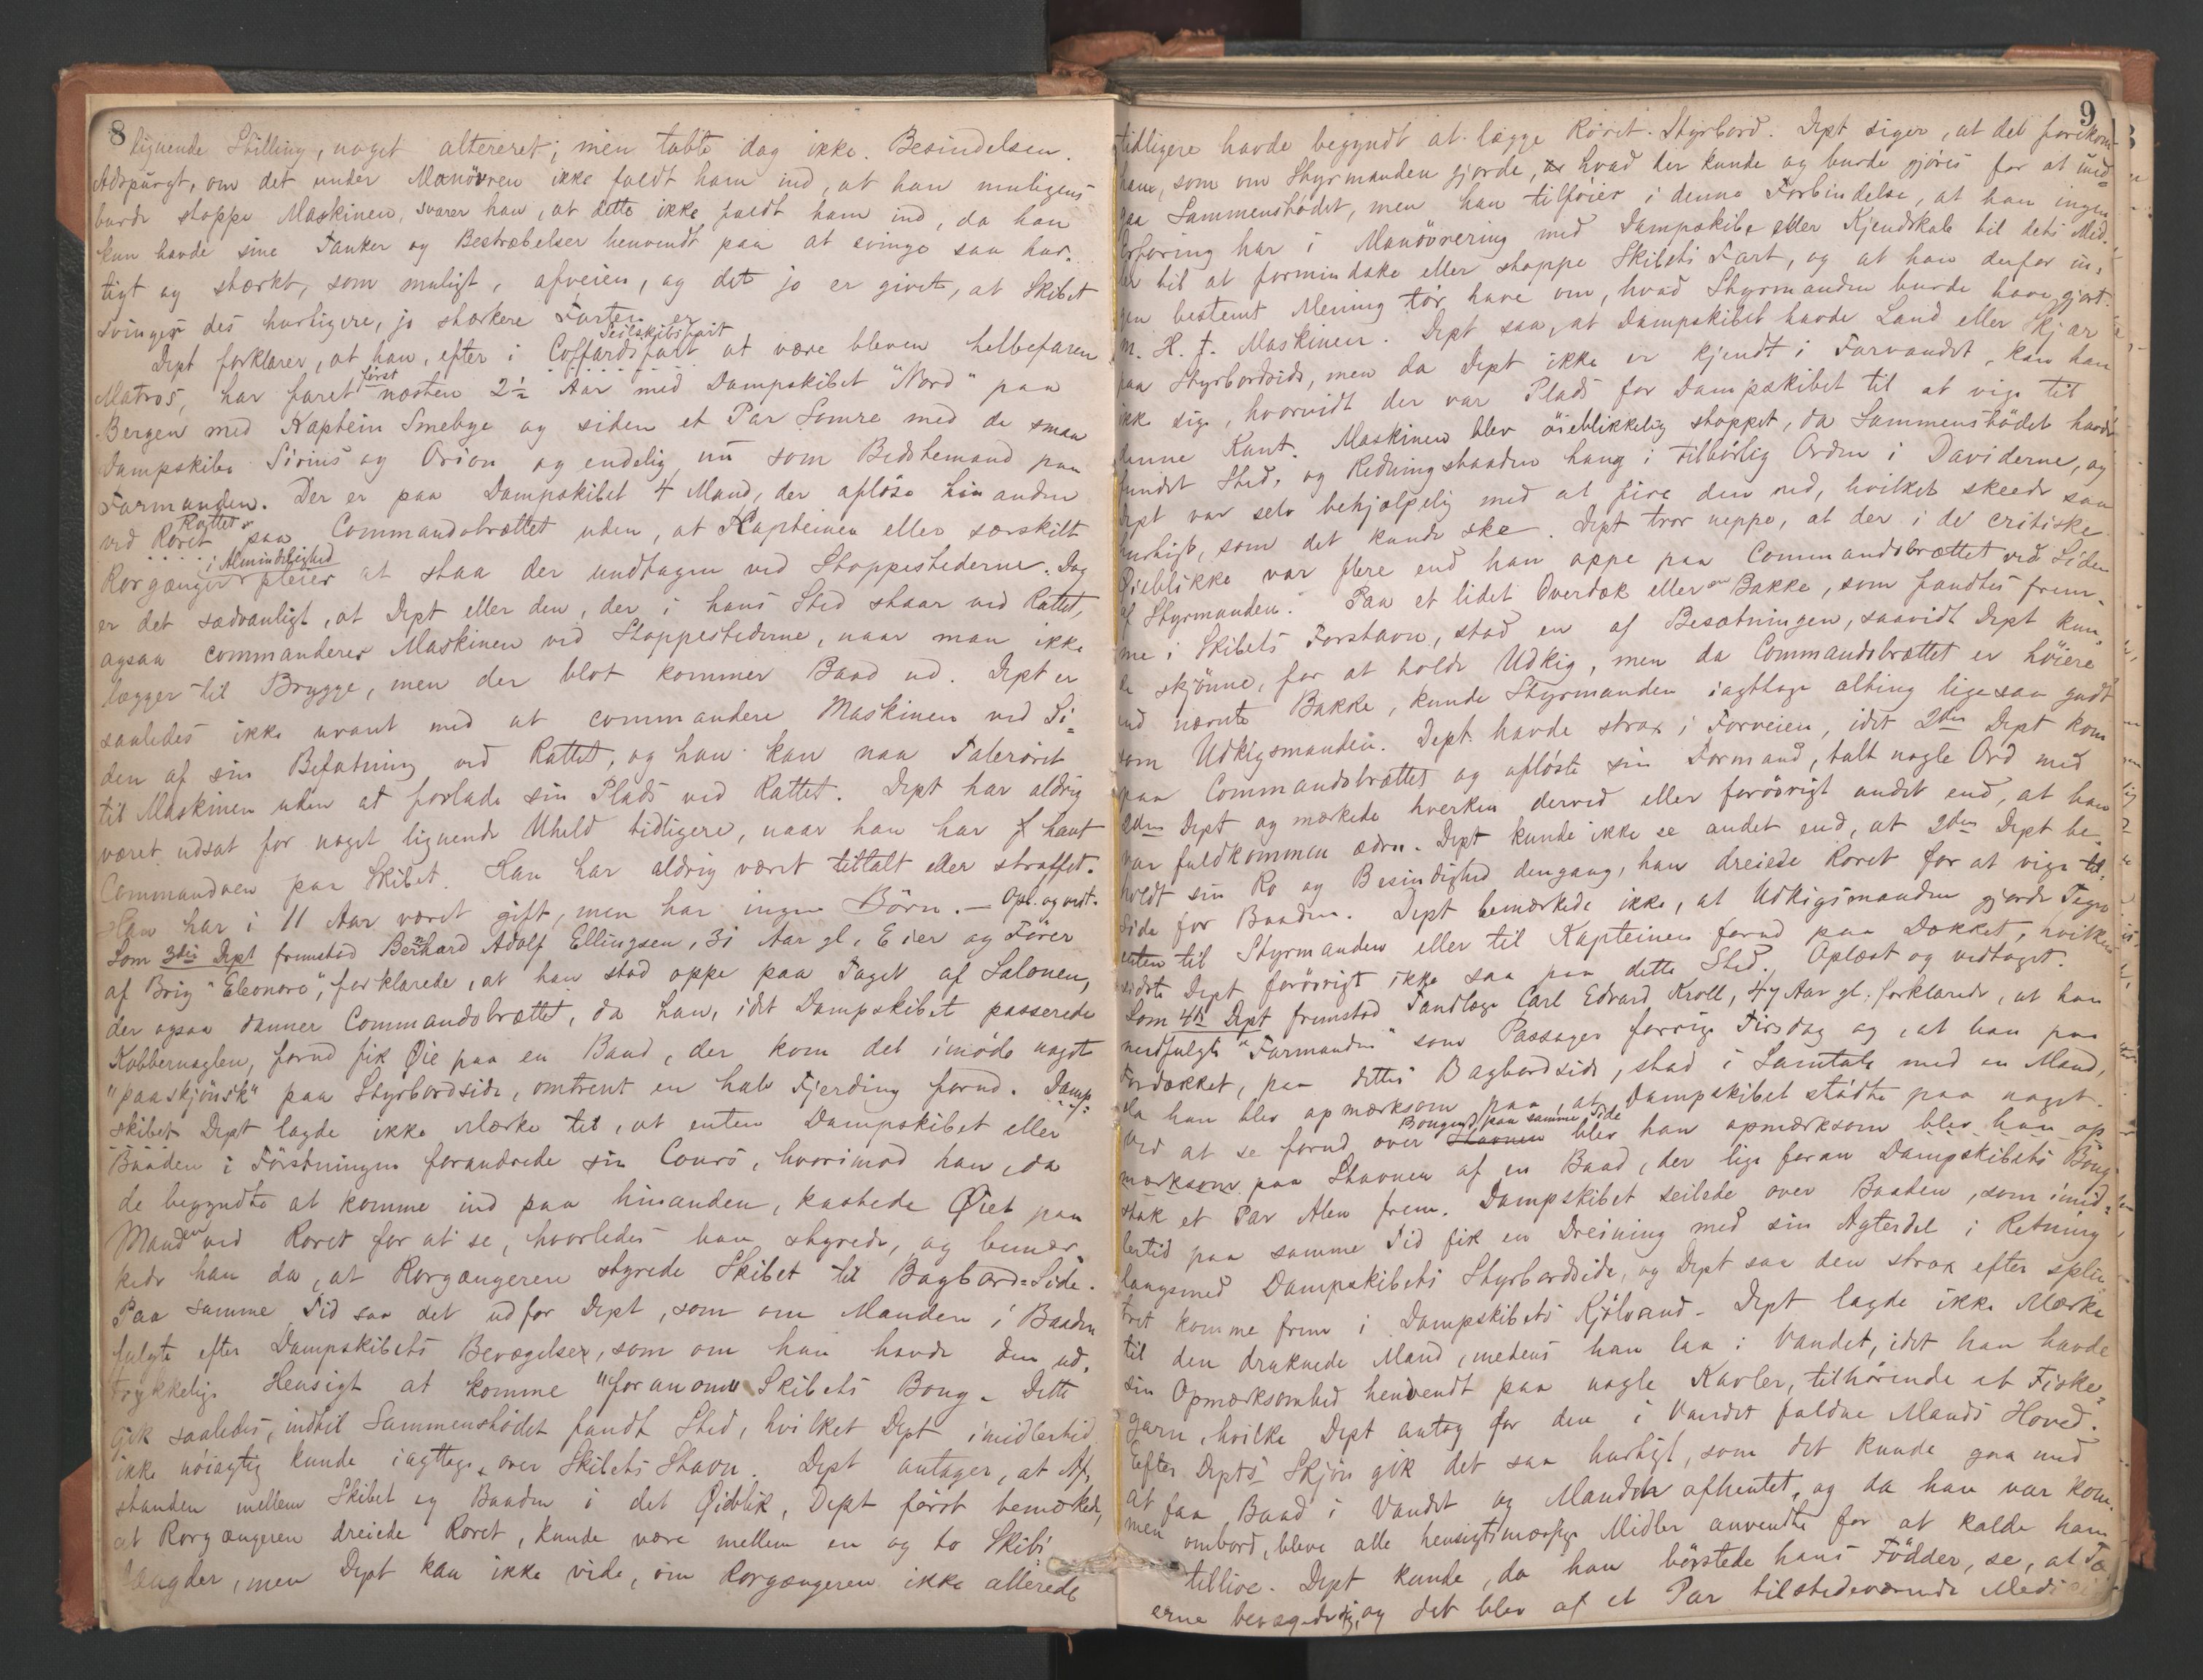 8
lignende Stilling, noget altereret; men tabte dog ikke Besindelsen.
Adspurgt, om det under Manövren ikke faldt ham ind, at han muligens
burde stoppe Maskinen, svarer han, at dette ikke faldt ham ind, da han
kun havde sine Tanker og Bestræbelser henvendt paa at svinge saa hur-
tigt og stærkt, som muligt, afveien, og det jo er givet, at Skibet
svinger des hurtigere, jo stærkere Farten er
Seilskibsfart
Dept forklarer, at han, efter i Coffardifart at være bleven helbefaren
Matros, har faret først næsten 2½ Aar med Dampskibet "Nord" paa
Bergen med Kaptein Smebye og siden et Par Somre med de smaa
Dampskibe Sirius og Orion og endelig nu som Bedstemand paa
Farmanden. Der er paa Dampskibet 4 Mand, der afløse hinanden
Rattet
ved Roret paa Commandobrættet uden, at Kapteinen eller særskilt
i Almindelighed
Rorgænger pleier at staa der undtagen ved Stoppestederne. Dog
er det sædvanligt, at Dept eller den, der i hans Sted staar ved Rattet,
ogsaa commanderer Maskinen ved Stoppestederne, naar man ikke
lægger til Brygge, men der blot kommer Baad ud. Dept er
saaledes ikke uvant med at commandere Maskinen ved Si-
den af sin Befatning ved Rattet, og han kan naa Talerøret
til Maskinen uden at forlade sin Plads ved Rattet. Dept har aldrig
været udsat for noget lignende Uheld tidligere, naar han har havt
Commandoen paa Skibet. Han har aldrig været tiltalt eller straffet.
Han har i 11 Aar været gift, men har ingen Börn. — Opl. og vedt.
Som 3die Dept fremstod Bernhard Adolf Ellingsen, 31 Aar gl, Eier og Fører
af Brig "Eleonore", forklarede, at han stod oppe paa Taget af Salonen,
der ogsaa danner Commandobrættet, da han, idet Dampskibet passerede
Kobbernaglen, forud fik Øie paa en Baad, der kom det imøde noget
"paaskjönsk" paa Styrbordside, omtrent en halv Fjerding forud. Damp-
skibet Dept lagde ikke Mærke til, at enten Dampskibet eller
Baaden i Förstningen forandrede sin Cours, hvorimod han, da
de begyndte at komme ind paa hinanden, kastede Øiet paa
Manden ved Roret for at se, hvorledes han styrede, og bemær-
kede han da, at Rorgængeren styrede Skibet til Bagbord-Side.
Paa samme Tid saa det ud for Dept, som om Manden i Baaden
fulgte efter Dampskibets Bevægelser, som om han havde den ud-
trykkelige Hensigt at komme "foranom" Skibets Boug. Dette
gik saaledes, indtil Sammenstødet fandt Sted, hvilket Dept imidlertid
ikke nöiagtig kunde iagttage over Skibets Stavn. Dept antager, at Af-
standen mellem Skibet og Baaden i det Øieblik, Dept först bemærkede,
at Rorgængeren dreiede Roret, kunde være mellem en og to Skibs-
længder, men Dept kan ikke vide, om Rorgængeren ikke allerede
9
tidligere havde begyndt at lægge Röret Styrbord. Dept siger, at det forekom
ham, som om Styrmanden gjorde, hvad der kunde og burde gjöres for at und-
gaa Sammenstødet, men han tilføier i denne Forbindelse, at han ingen
Erfaring har i Manövrering med Dampskibe eller Kjendskab til dets Mid-
ler til at formindske eller stoppe Skibets Fart, og at han derfor in-
gen bestemt Mening tør have om, hvad Styrmanden burde have gjort
m. H. t. Maskinen. Dept saa, at Dampskibet havde Land eller Skjær
paa Styrbordside, men da Dept ikke er kjendt i Farvandet, kan han
ikke sige, hvorvidt der var Plads for Dampskibet til at vige til
denne Kant. Maskinen blev öieblikkelig stoppet, da Sammenstödet havde
fundet Sted, og Redningsbaaden hang i tilbörlig Orden i Daviderne, og
Dept var selv behjælpelig med at fire den ned, hvilket skeede saa
hurtigt, som det kunde ske. Dept tror neppe, at der i de critiske
Øieblikke var flere end han oppe paa Commandobrættet ved Siden
af Styrmanden. Paa et lidet Overdæk eller en Bakke, som fandtes frem-
me i Skibets Forstavn, stod en af Besætningen, saavidt Dept kun-
de skjönne, for at holde Udkig, men da Commandobrættet er höiere
end nævnte Bakke, kunde Styrmanden iagttage alting lige saa godt
som Udkigsmanden. Dept havde strax i Forveien, idet 2den Dept kom
paa Commandobrættet og afløste sin Formand, talt nogle Ord med
2den Dept og mærkede hverken derved eller forövrigt andet end, at han
var fuldkommen ædru. Dept kunde ikke se andet end, at 2den Dept be-
holdt sin Ro og Besindighed dengang, han dreiede Roret for at vige til
Side for Baaden. Dept bemærkede ikke, at Udkigsmanden gjorde Tegn
enten til Styrmanden eller til Kapteinen forud paa Dækket, hvilken
sidste Dept forövrigt ikke saa paa dette Sted. Oplæst og vedtaget.
Som 4de Dept fremstod Tandlæge Carl Edvard Kroll, 47 Aar gl. forklarede, at han
medfulgte "Farmanden" som Passager forrige Tirsdag og, at han paa
Fordækket, paa dettes Bagbordside, stod i Samtale med en Mand,
da han blev opmærksom paa, at Dampskibet stödte paa noget.
Bougen paa samme Side
Ved at se forud over Stavnen blev han opmærksom blev han op-
mærksom paa Stavnen af en Baad, der lige foran Dampskibets Boug
stak et Par Alen frem. Dampskibet seilede over Baaden, som imid-
lertid paa samme Tid fik en Dreining med sin Agterdel i Retning
langsmed Dampskibets Styrbordside, og Dept saa den strax efter splin-
tret komme frem i Dampskibets Kjölvand. Dept lagde ikke Mærke
til den druknede Mand, medens han laa i Vandet, idet han havde
sin Opmærksomhed henvendt paa nogle Kavler, tilhörende et Fiske-
garn, hvilke Dept antog for den i Vandet faldne Mands Hoved.
Efter Depts Skjön gik det saa hurtigt, som det kunde gaa med
at faa Baad i Vandet og Manden afhentet, og da han var kom-
men ombord, bleve alle hensigtsmæssige Midler anvendte for at kalde ham
tillive. Dept kunde, da han börstede hans Födder, se, at Tæ-
erne bevægede sig, og det blev af et Par tilstedeværende